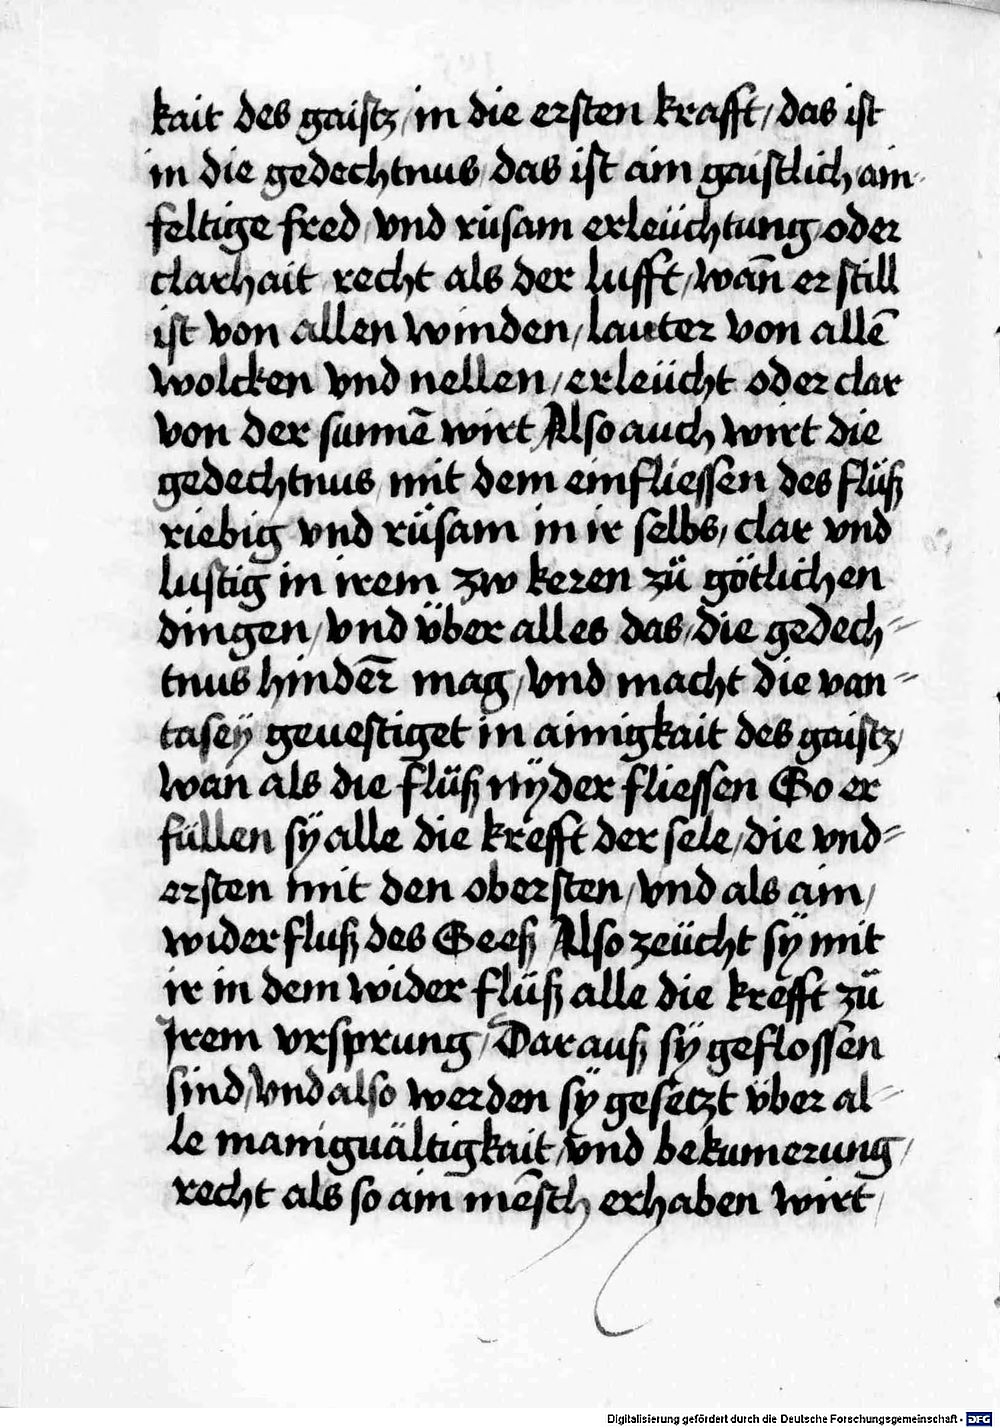 kait des gaistz / in die ersten krafft / das ist
in die gedechtnus das ist ain gaistlich ain-
feltige fred / vnd rüsam erleüchtung oder
clarhait recht als der lufft / wañ er still
ist von allen winden / lauter von allē
wolcken vnd nellen / erleücht oder clar
von der sunnē wirt Also auch wirt die
gedechtnus mit dem einfliessen des flüß
riebig vnd rüsam in ir selbs / clar vnd
lustig in irem zw keren zü götlichen
dingen / vnd über alles das / die gedech-
tnus hinder̄ mag / vnd macht die van-
tasey geuestiget in ainigkait des gaistz
wan als die flüß nÿder fliessen So er
füllen sÿ alle die krefft der sele / die vnd-
ersten mit den obersten / vnd als ain /
widerfluß des Seeß Also zeücht sÿ mit
ir in dem wider flüß alle die krefft zü
Jrem vrsprung / Darauß sÿ geflossen
sind / vnd also werden sÿ gesetzt über al-
le maniguältigkait / vnd bekumerung /
recht als so ain mēsch erhaben wirt /
Digitalisierung gefördert durch die Deutsche Forschungsgemeinschaft - DFG